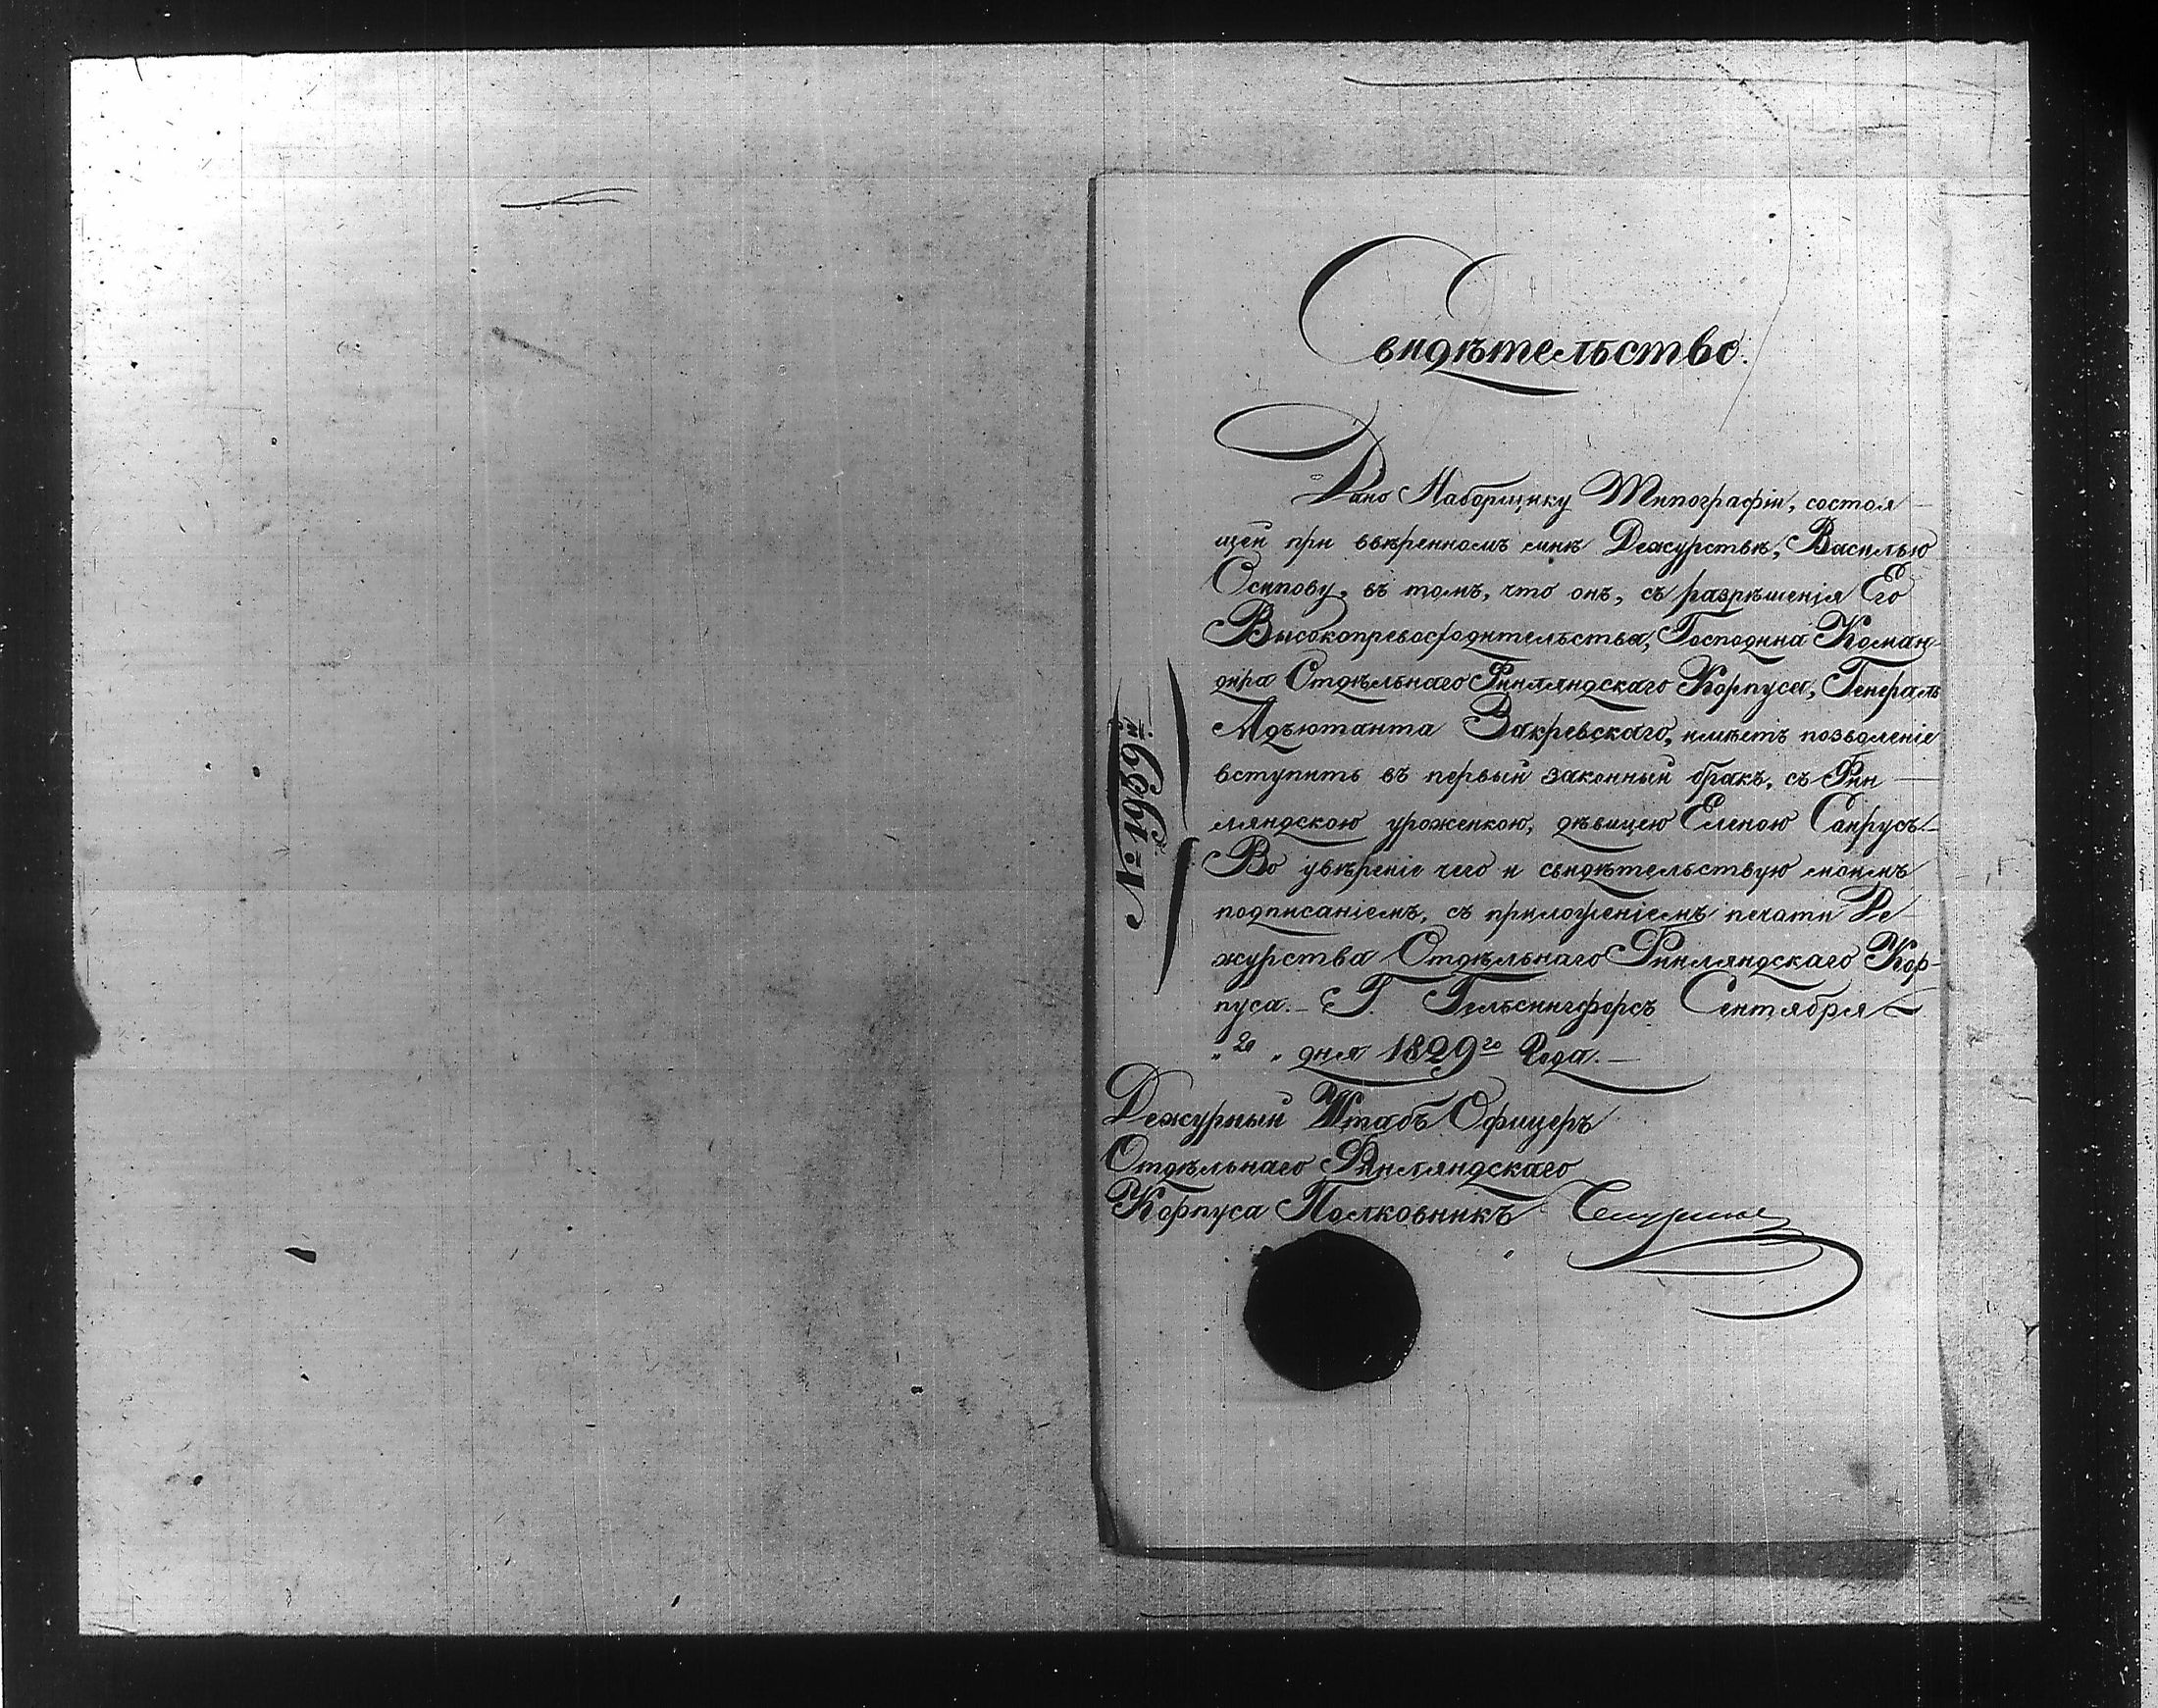 Свидѣтельство.
Дано Наборщику Типографіи, состоя
щей при ввѣренномъ мнѣ Дежурствѣ, Василью
Осипову, въ томъ, что онъ, съ разрѣшенія Его
Высокопревосходительства, Господина Коман-
дира Отдѣльнаго Финляндскаго Корпуса, Генералъ
Адъютанта Закревскаго, имѣетъ позволеніе
вступить въ первый законный бракъ, съ Фин
ляндскою уроженкою, дѣвицею Еленою Сапрусъ.
Во увѣреніе чего и свидѣтельствую моимъ
подписаніемъ, съ приложеніемъ печати Де-
журства Отдѣльнаго Финляндскаго Кор-
пуса. Г. Гельсингфорсъ Сентября
" 20 " дня 1829го Года.
Дежурный Штабъ Офицеръ
Отдѣльнаго Финляндскаго
Корпуса Полковникъ
№ 1959й